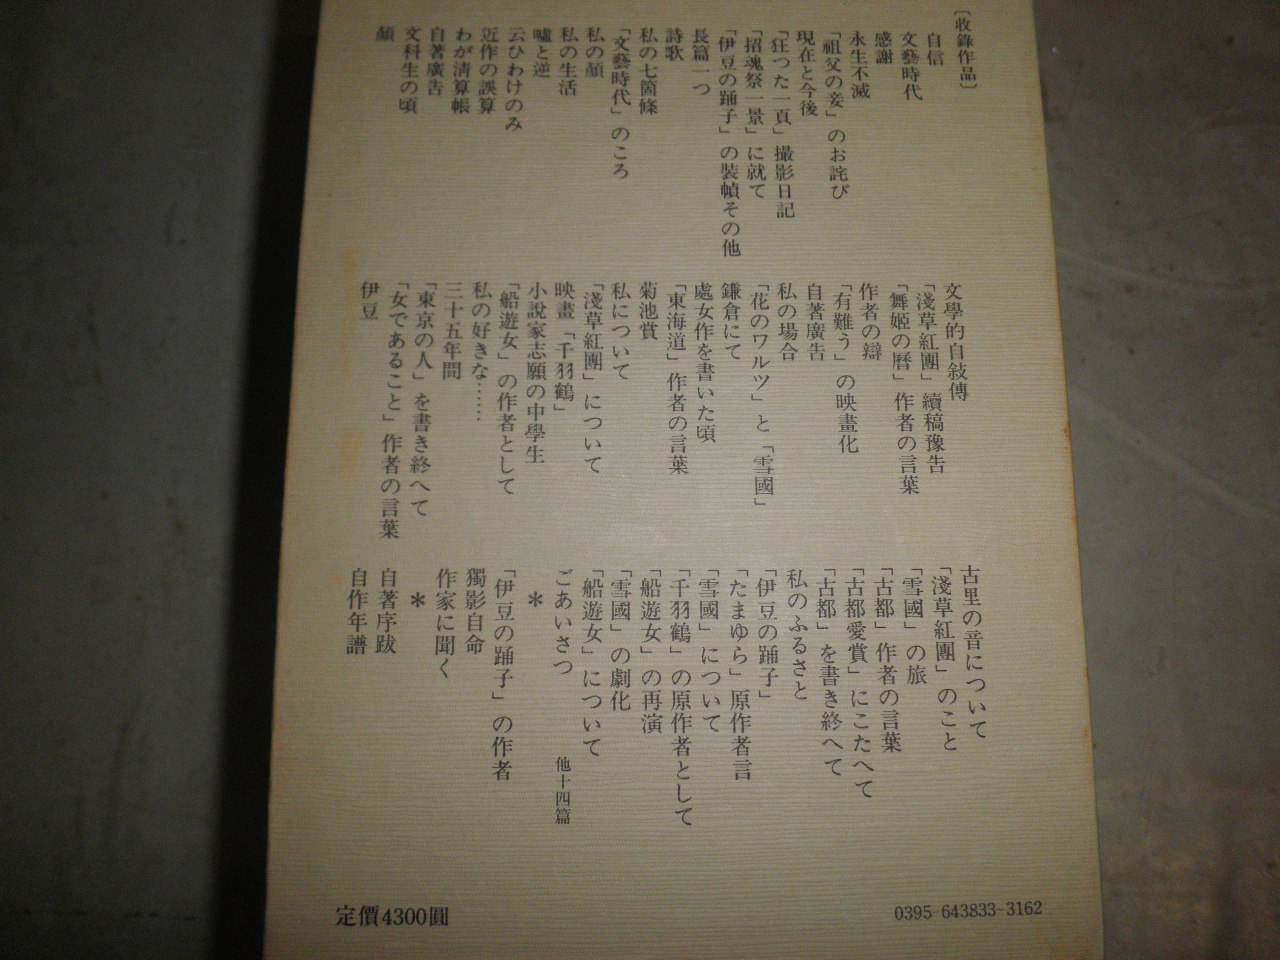 〔收錄作品〕
自信
文藝時代
感謝
永生不滅
「祖父の妾」のお詫び
現在と今後
「狂つた一頁」撮影日記
「招魂祭一景」に就て
「伊豆の踊子」の裝幀その他
長篇一つ
詩歌
私の七箇條
「文藝時代」のころ
私の顏
私の生活
嘘と逆
云ひわけのみ
近作の誤算
わが淸算帳
自著廣吿
文科生の頃
顏
文學的自敍傳
「淺草紅團」續稿豫吿
「舞姬の曆」作者の言葉
作者の辯
「有難う」の映畫化
自著廣吿
私の場合
「花のワルツ」と「雪國」
鎌倉にて
處女作を書いた頃
「東海道」作者の言葉
菊池賞
私について
「淺草紅團」について
映畫「千羽鶴」
小說家志願の中學生
「船遊女」の作者として
私の好きな……
三十五年間
「東京の人」を書き終へて
「女であること」作者の言葉
伊豆
古里の音について
「淺草紅團」のこと
「雪國」の旅
「古都」作者の言葉
「古都愛賞」にこたへて
「古都」を書き終へて
私のふるさと
「伊豆の踊子」
「たまゆら」原作者言
「雪國」について
「千羽鶴」の原作者として
「船遊女」の再演
「雪國」の劇化
「船遊女」について
ごあいさつ 他十四篇
＊
「伊豆の踊子」の作者
獨影自命
作家に聞く
＊
自著序跋
自作年譜
定價4300圓
0395-643833-3162